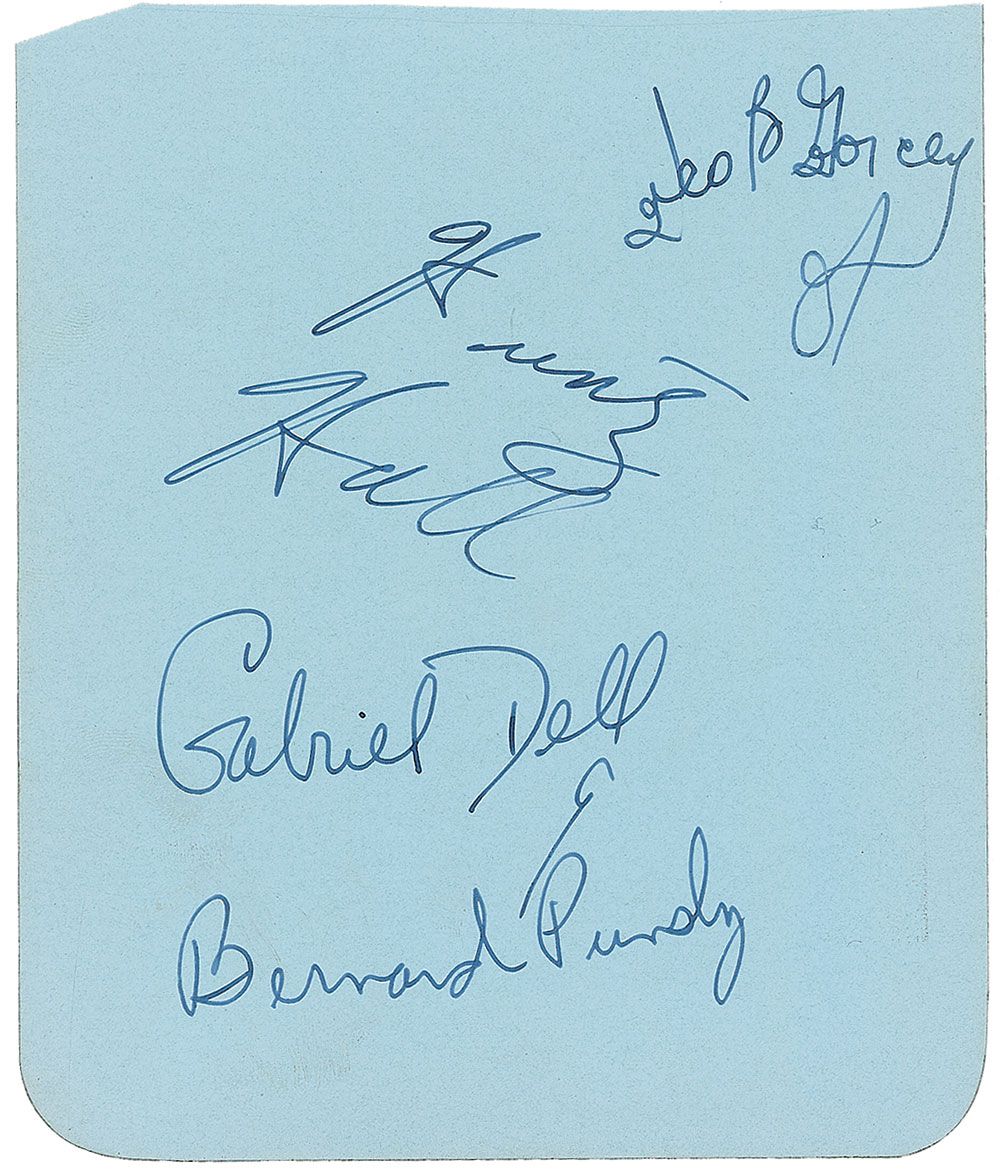 Leo B Gorcey
Huntz
Hall
Gabriel Dell
Bernard Punsly